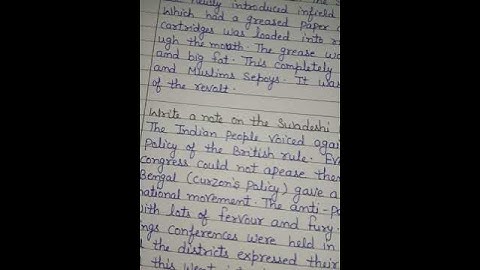 newly introduced infield
which had a greased paper
cartridges was loaded into
ugh the mouth. The grease
and big fat. This completely
and Muslims sepoys. It was
of the revolt.
Write a note on the Swadeshi
The Indian people voiced agai
policy of the British rule.
congress could not apease them
Bengal (Curzon's Policy) gave a
national movement. The anti-p
with lots of fervour and fury.
ngs conferences were held in
the districts expressed their
this went